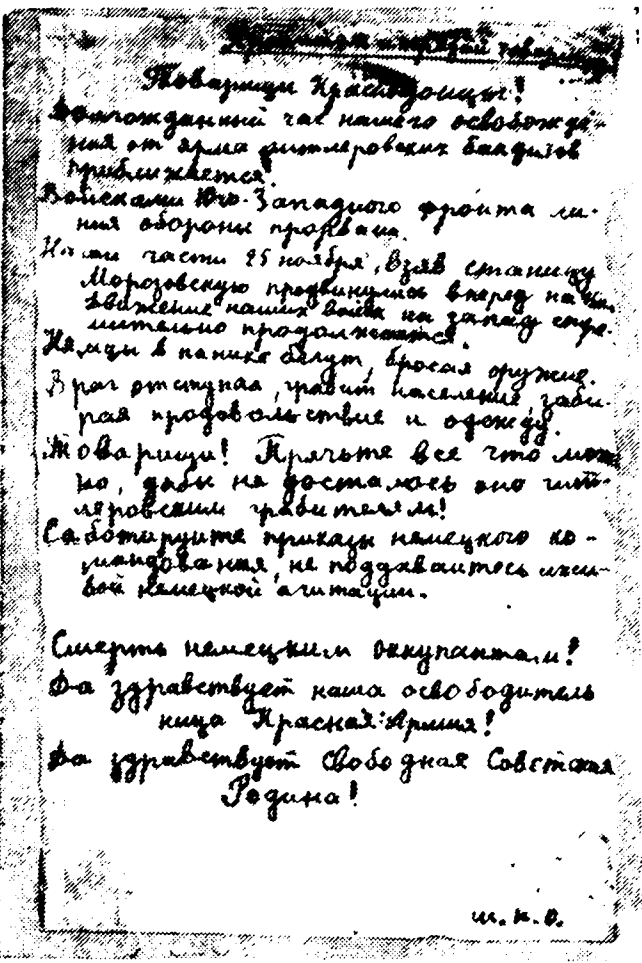 Прочитай и передай товарищу
Товарищи Краснодонцы!
Долгожданный час нашего освобожде-
ния от ярма гитлеровских бандитов
приближается!
Войсками Юго-Западного фронта ли-
ния обороны прорвана.
Наши части 25 ноября, взяв станицу
Морозовскую продвинулись вперед на
Движение наших войск на запад стре-
мительно продолжается.
Немцы в панике бегут, бросая оружие.
Враг отступая, грабит население, заби-
рая продовольствие и одежду.
Товарищи! Прячьте все что мож-
но, дабы не досталось оно гит-
леровским грабителям!
Саботируйте приказы немецкого ко-
мандования, не поддавайтесь лжи-
вой немецкой агитации.
Смерть немецким оккупантам!
Да здравствует наша освободитель
ница Красная Армия!
Да здравствует свободная Советская
Родина!
ш.к.о.